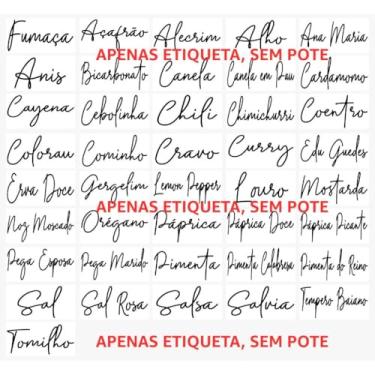 Fumaça Açafrão Alecrim Alho Ana Maria
APENAS ETIQUETA, SEM POTE
Anis Bicarbonato Canela Canela em Pau Cardamomo
Cayena Cebolinha Chili Chimichurri Coentro
Colorau Cominho Cravo Curry Edu Guedes
Erva Doce Gergelim Lemon Pepper Louro Mostarda
APENAS ETIQUETA, SEM POTE
Noz Moscada Orégano Páprica Páprica Doce Páprica Picante
Pega Esposa Pega Marido Pimenta Pimenta Calabresa Pimenta do Reino
Sal Sal Rosa Salsa Salvia Tempero Baiano
Tomilho APENAS ETIQUETA, SEM POTE